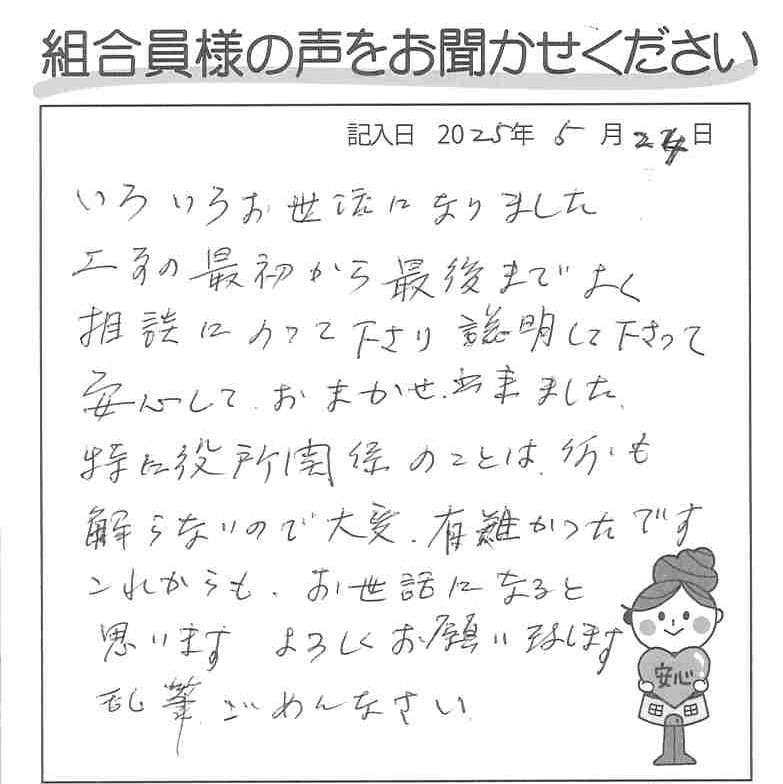 組合員様の声をお聞かせください
記入日 2025年 5月24日
いろいろお世話になりました
工事の最初から最後までよく
相談にのって下さり 説明して下さって
安心して、おまかせ出来ました、
特に役所関係のことは、何も
解らないので大変、有難かったです
これからも、お世話になると
思います よろしくお願い致します
乱筆、ごめんなさい、
安心